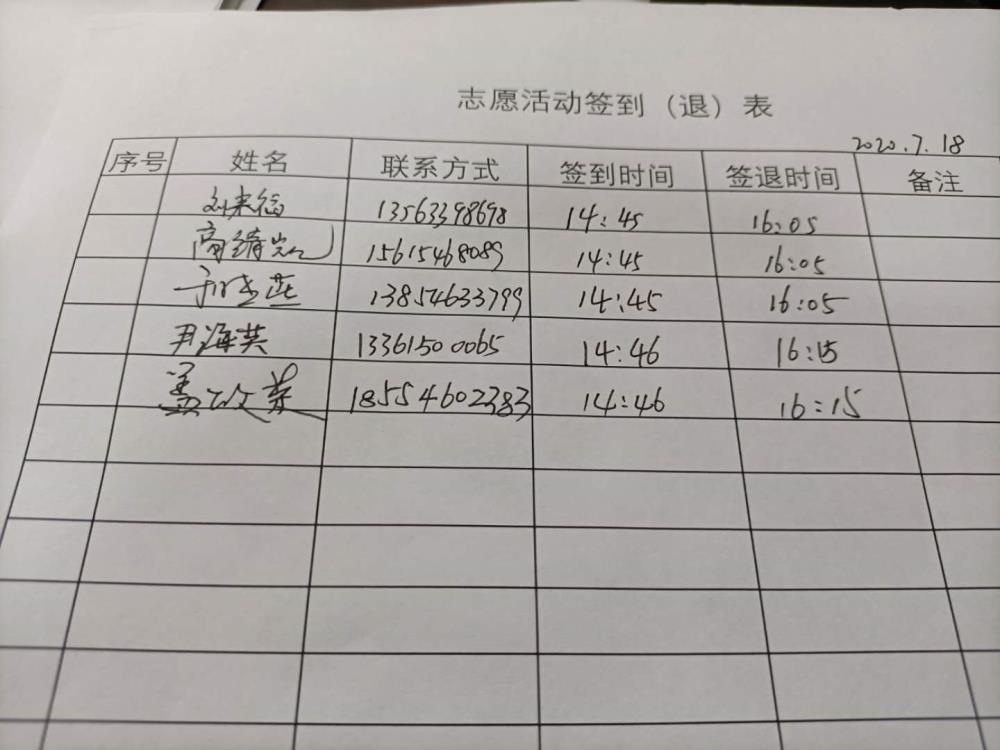 志愿活动签到（退）表
2020.7.18
序号 姓名 联系方式 签到时间 签退时间 备注
刘来福 13563398698 14:45 16:05
高绪岩 15615468089 14:45 16:05
13854633799 14:45 16:05
尹海英 13361500065 14:46 16:15
18554602383 14:46 16:15